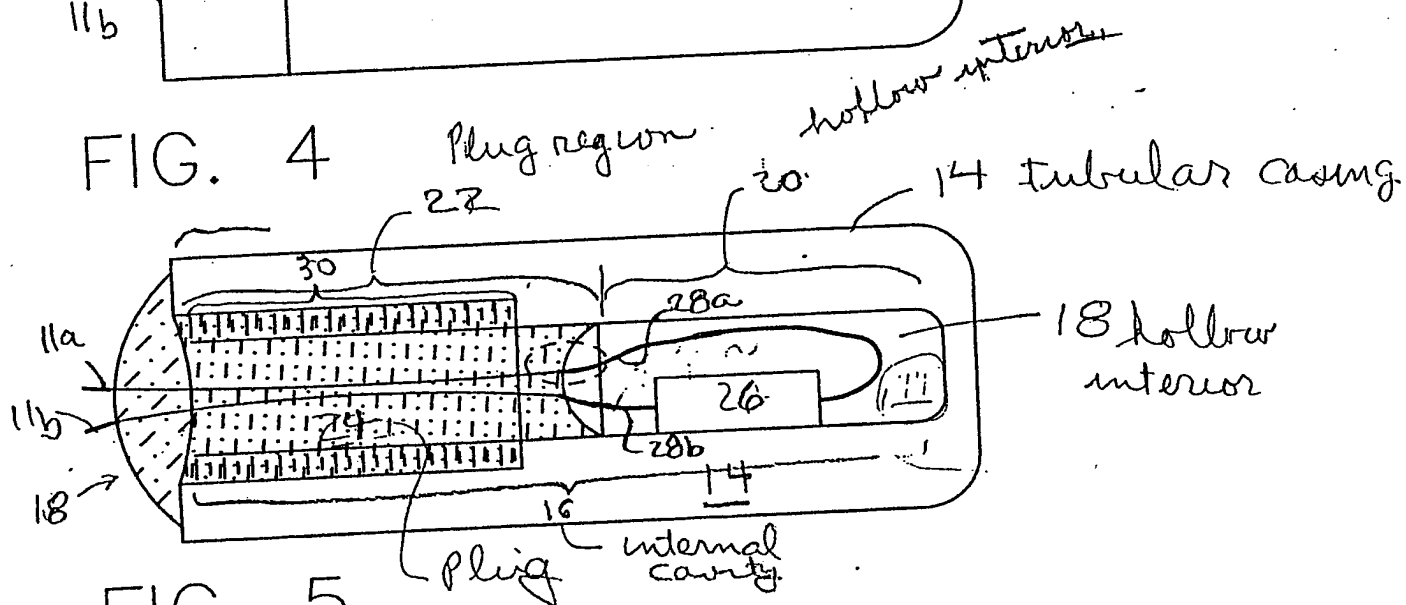 11b
hollow interior
FIG. 4 Plug region
20
14 tubular casing
22
30
28a
11a
18 hollow
interior
11b
26
24
28b
18
14
16
internal
cavity
Plug
FIG. 5